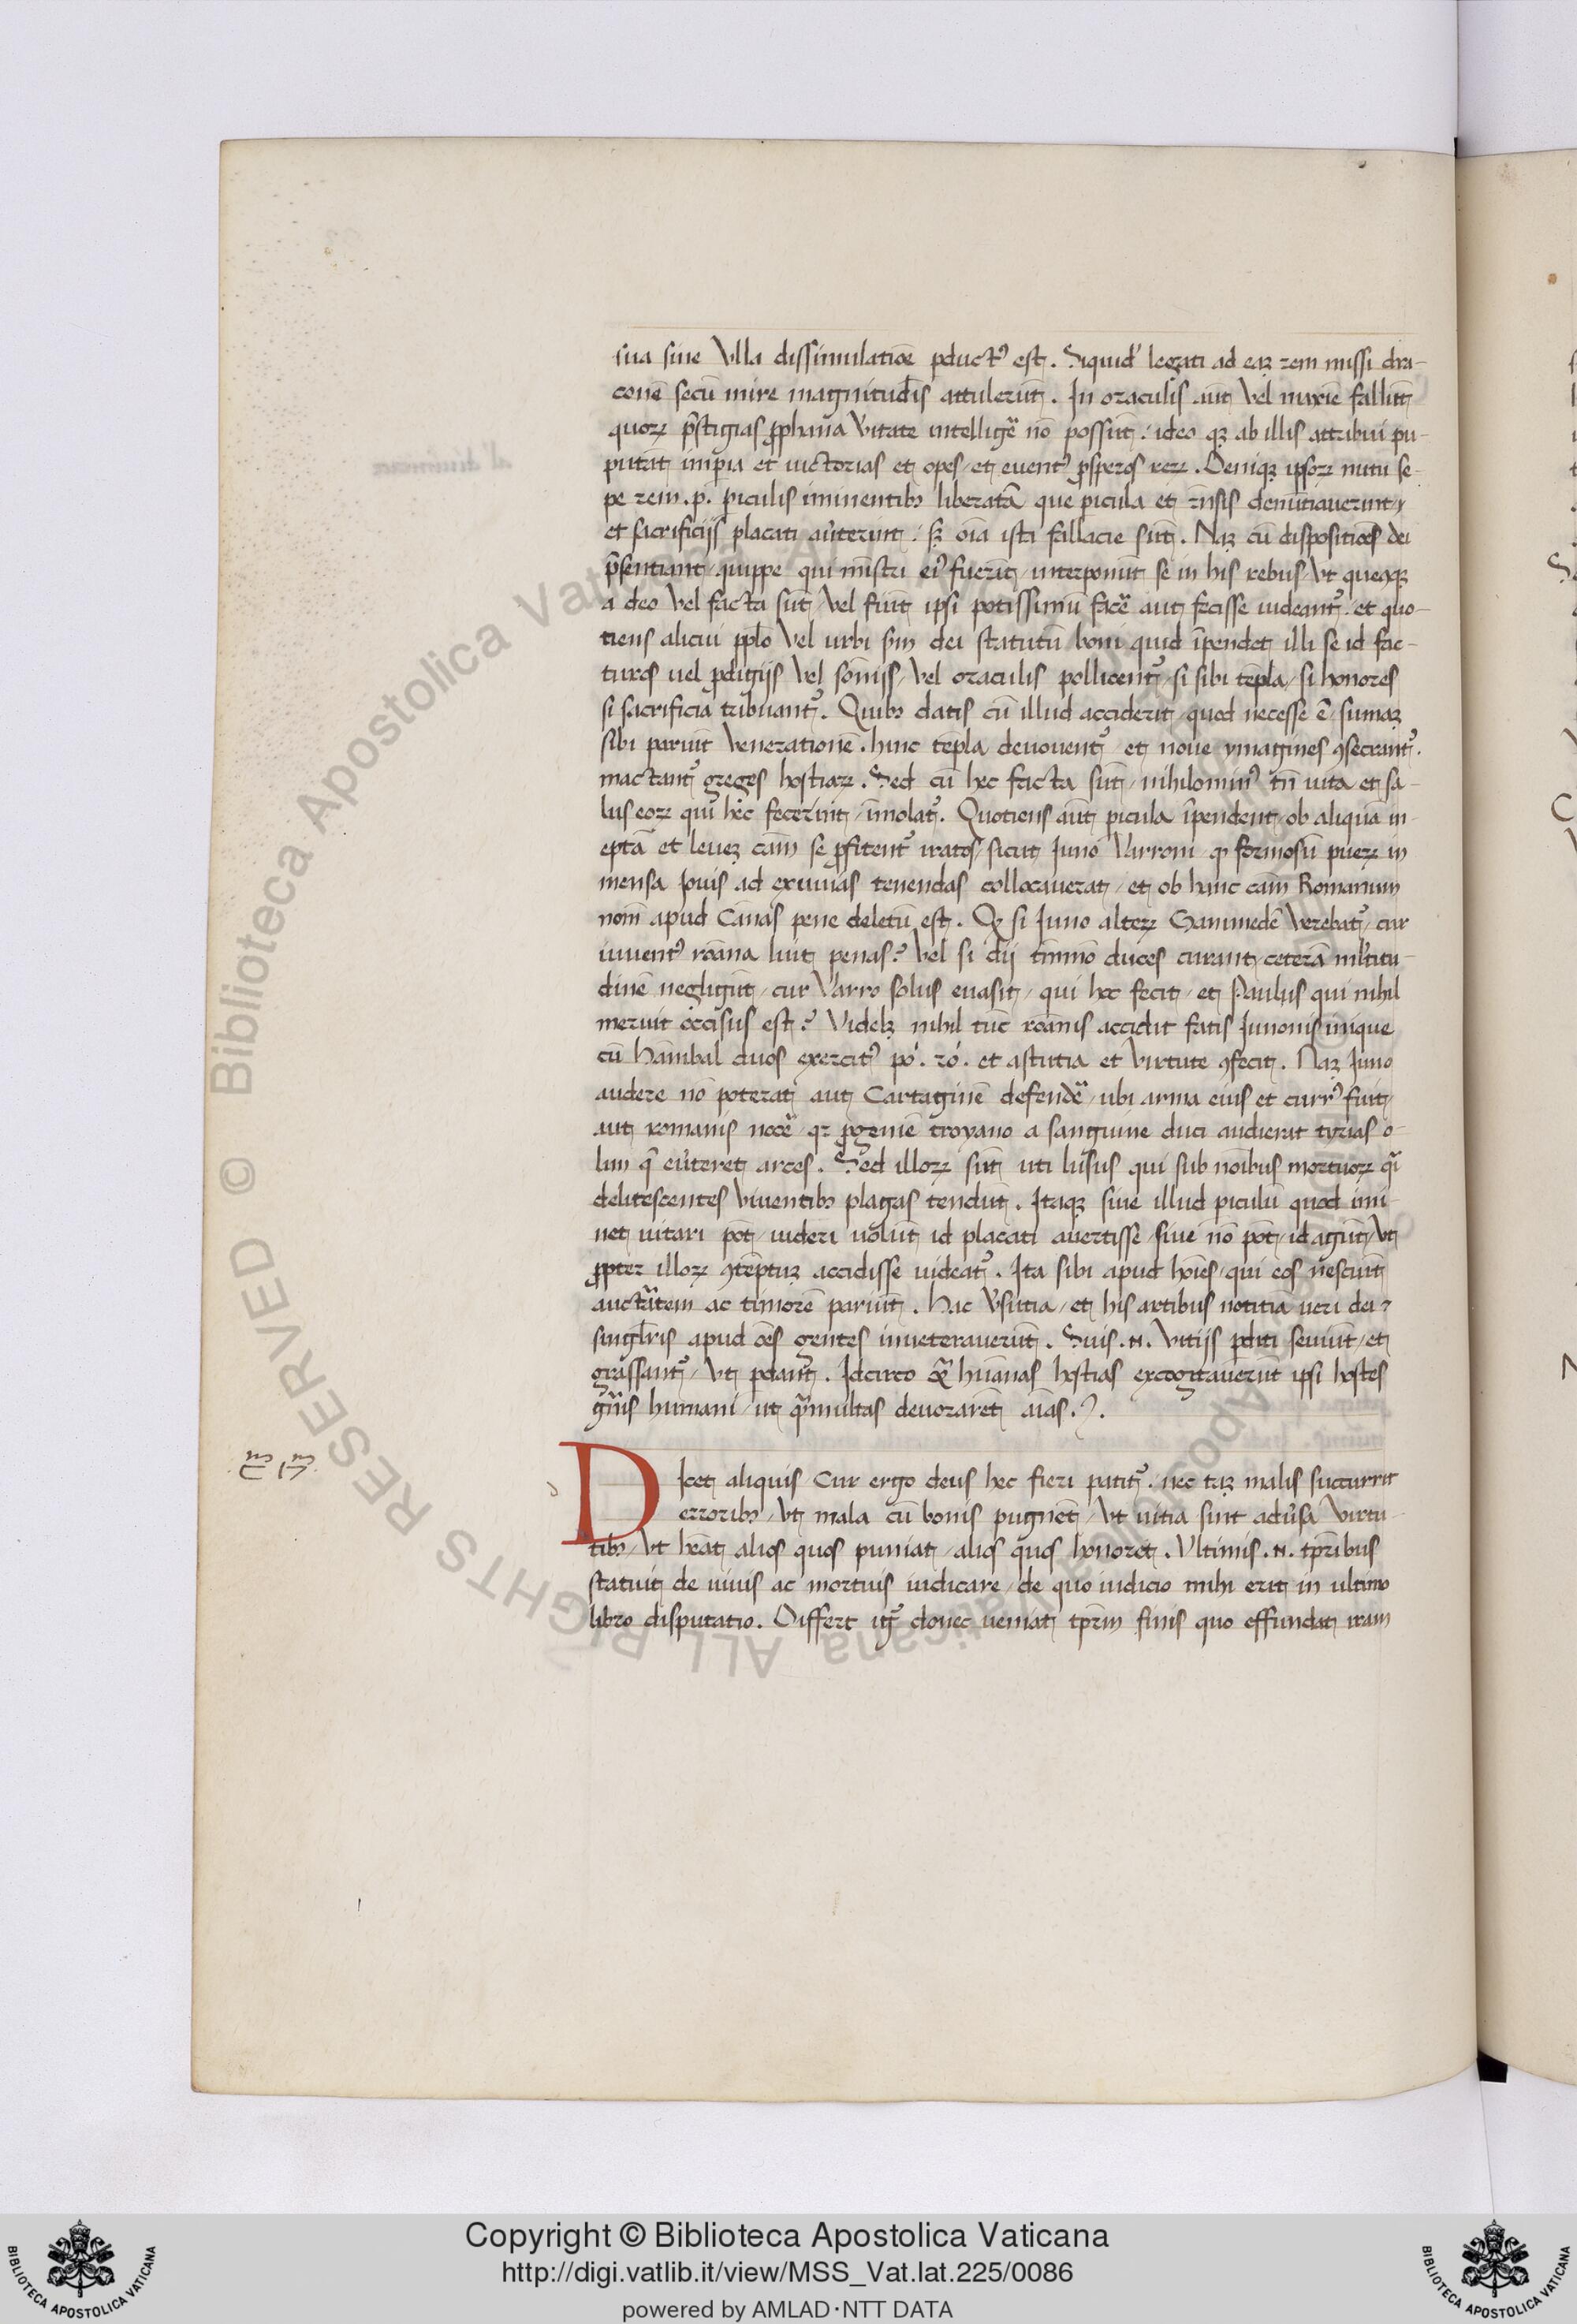 sua siue Vlla dissimulatiōe ꝑductꝰ est. Siquid' legati ad eaꝫ rem missi dra-
conē secū mire magnitudīs attulerūt. In oraculis aūt Vel maxīe fallūt
quoꝝ p̄stigias ꝓphana v̓itate intelligē nō possūt: ideo qꝫ ab illis attribui pu-
putāt imꝑia et uictorias et opes, et euentꝰ ꝓsperos reꝝ. Deniqꝫ ipsoꝝ nutu se-
pe rem. p. ꝑiculis iminentibꝫ liberatā que ꝑicula et rn̄sis denūtiauerunt,
et sacrificijs placati au̓terunt: sꝫ oīa isti fallacie sūt. Naꝫ cū dispositiōes dei
p̄sentiant, quippe qui mīstri eiꝰ fuerūt, interponūt se in his rebus, Vt queqꝫ
a deo Vel facta sūt, Vel fiūt ipsi potissimū facē aut fecisse uideantꝰ. et quo-
tiens alicui ppl̄o Vel urbi sm̄ dei statutū boni quid īpendet illi se id fac-
turos uel ꝓdigijs Vel somnijs, Vel oraculis pollicentꝰ, si sibi tēpla, si honores
si sacrificia tribuantꝰ. Quibꝫ datis cū illud acciderit, quod necesse ē, sumaꝫ
sibi pariūt Venerationē. hinc tēpla deuouentꝰ, et noue ymagines ꝯsecrantꝰ.
mactantꝰ greges hostiaꝝ. Sed cū hec facta sūt, nihilominꝰ tn̄ uita et sa-
lus eoꝝ qui hec fecerint, īmolatꝰ. Quotiens aūt ꝑicula īpendent, ob aliquā in-
eptā et leueꝫ cām se ꝓfitentꝰ iratos, sicut Iuno Varroni qꝫ formosū pueꝝ in
mensa Iouis ad exuuias tenendas collocauerat, et ob hanc cām Romanum
nom̄ apud Cānas pene deletū est. Qꝫ si Iuno alteꝝ Ganimedē Verebatꝰ, cur
iuuentꝰ roāna luit penas? Vel si dij tm̄mō duces curant, ceterā mltitu-
dinē negligūt, cur Varro solus euasit, qui hoc fecit, et Paulus qui nihil
meruit occisus est? Videlꝫ nihil tūc roānis accidit fatis Iunonis inique
cū Hānibal duos exercitꝰ po. ro. et astutia et Virtute ꝯfecit. Naꝫ Iuno
audere nō poterat aut Cartaginē defendē, ubi arma eius et currꝰ fuit,
aut romanis nocē, qꝛ ꝓgeniē troyano a sanguine duci audierat tyrias o-
lim q̄ eu̓teret arces. Sed illoꝝ sūt uti lusus qui sub noībus mortuoꝝ q̄i
delitescentes Viuentibꝫ plagas tendūt. Itaqꝫ siue illud ꝑiculū quod imi-
net uitari pōt, uideri uolūt id placati auertisse, siue nō pōt, id agūt, Vt
ꝓpter illoꝝ ꝯtēptuꝫ accidisse uideatꝰ. Ita sibi apud hoīes, qui eos nesciūt
auctātem ac timorē pariūt. Hac v̓sutia, et his artibus notitiā ueri dei
singlaris apud oēs gentes inueterauerūt. Suis .N. Vitijs ꝑditi seuiūt, et
grassantꝰ, Vt ꝑdant. Idcirco &̄ hūanas hostias excogitauerūt ipsi hostes
gn̄is humani, ut q̄multas deuorarēt aīas.
DIcet aliquis Cur ergo deus hec fieri patitꝰ. nec taꝫ malis succurrit
erroribꝫ, Vt mala cū bonis pugnēt, Vt uitia sint adu̓sa Virtu-
tibꝫ, Vt hēat alios quos puniat, alios quos honoret. Vltimis .N. tp̄ribus
statuit de uiuis ac mortuis iudicare, de quo iudicio mihi erit in ultimo
libro disputatio. Differt igꝰ donec ueniat tp̄rm finis quo effundat iram
Copyright © Biblioteca Apostolica Vaticana
http://digi.vatlib.it/view/MSS_Vat.lat.225/0086
powered by AMLAD·NTT DATA
BIBLIOTECA APOSTOLICA VATICANA
BIBLIOTECA APOSTOLICA VATICANA